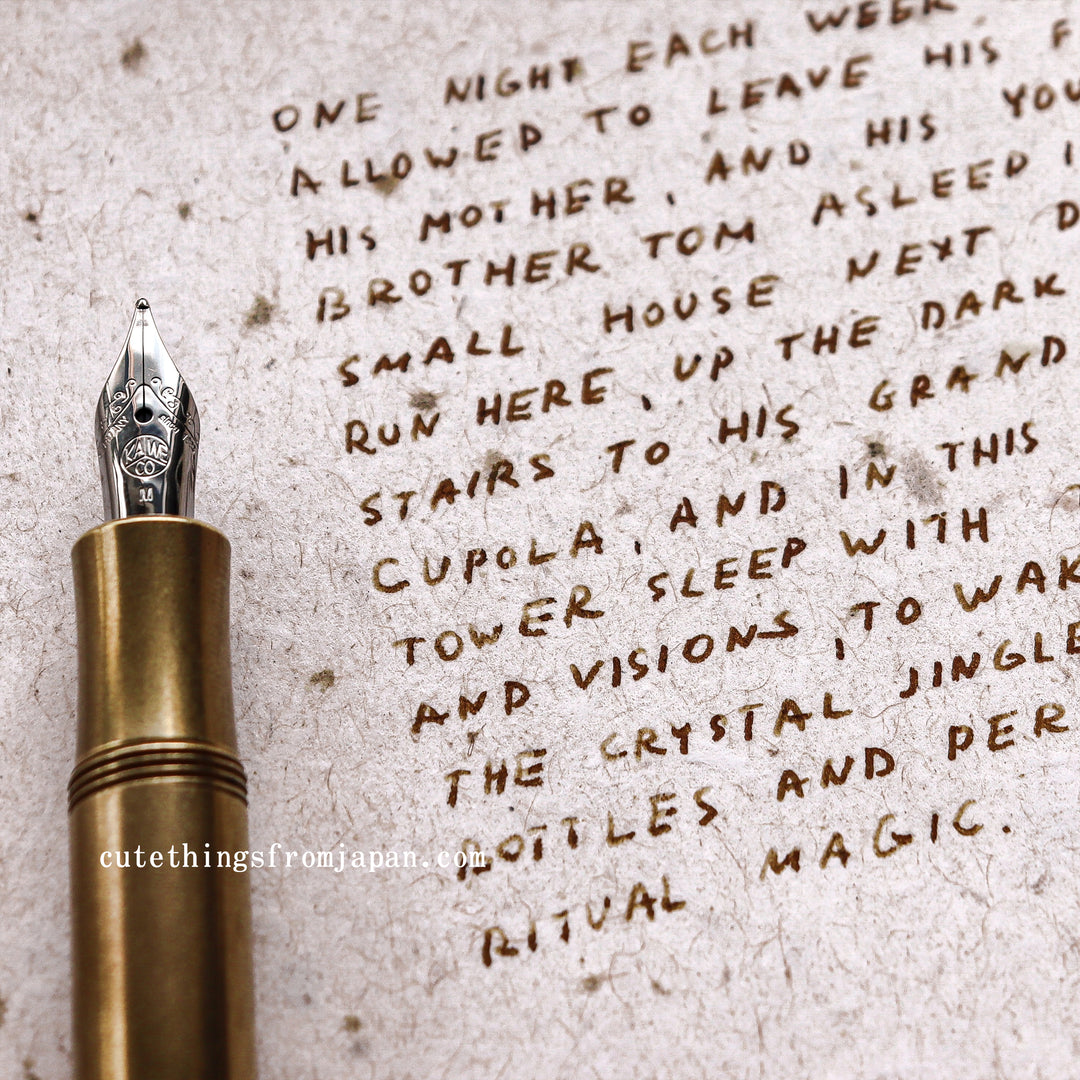 ONE NIGHT EACH WEEK
ALLOWED TO LEAVE HIS F
HIS MOTHER, AND HIS YOU
BROTHER TOM ASLEEP I
SMALL HOUSE NEXT D
RUN HERE, UP THE DARK
STAIRS TO HIS GRAND
CUPOLA, AND IN THIS
TOWER SLEEP WITH
AND VISIONS, TO WAK
THE CRYSTAL JINGLE
BOTTLES AND PER
RITUAL MAGIC.
KAWE
CO
M
cutethingsfromjapan.com